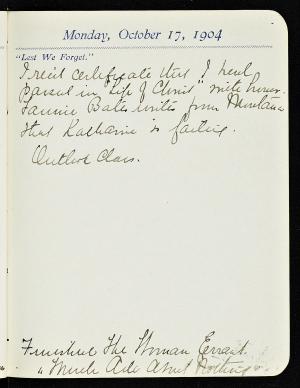 Monday, October 17, 1904
"Lest We Forget."
I rec'd certificate that I had
passed in "Life of Christ" with honor.
Fannie Bates writes from Montana
that Katharine is failing.
Outlook Class.
Finished The Woman Errant.
"Much Ado About Nothing".